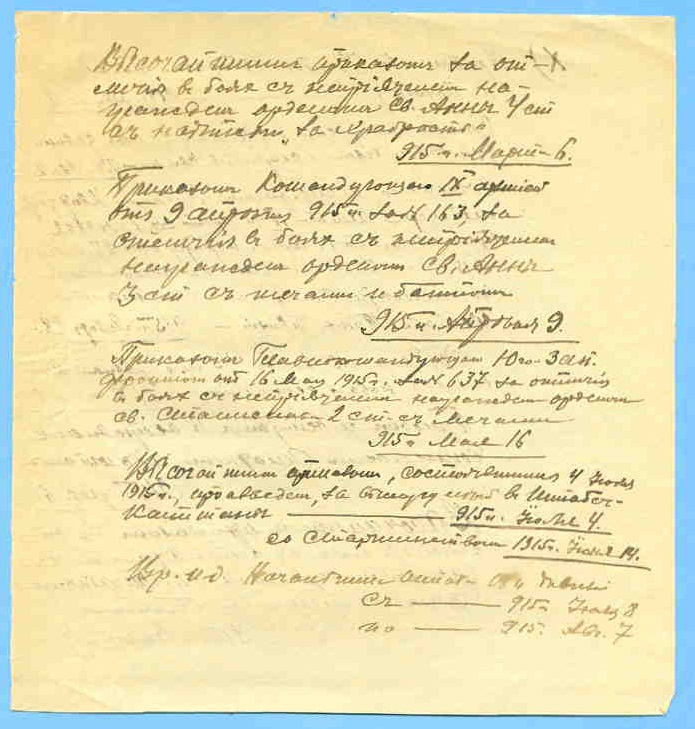 Высочайшимъ приказомъ за от-
личія въ бояхъ съ непріятелемъ на-
гражденъ орденомъ Св. Анны 4 ст
съ надписью „за храбрость“
915 г. Марта 6.
Приказомъ Командующаго IX арміей
отъ 9 апрѣля 915 г. за № 163, за
отличія въ бояхъ съ непріятелемъ
награжденъ орденомъ Св. Анны
3 ст съ мечами и бантомъ
915 г. Апрѣля 9.
Приказомъ Главнокомандующаго Юго-Зап.
фронтомъ отъ 16 Мая 1915 г. за № 637 за отличія
въ бояхъ съ непріятелемъ награжденъ орденомъ
св. Станислава 2 ст. съ мечами
915 г Мая 16
Высочайшимъ приказомъ, состоявшимся 4 Іюля
1915 г., произведенъ, за выслугу лѣтъ въ Штабсъ-
Капитаны 915 г. Іюля 4.
со старшинствомъ 1915 г. Іюля 14.
Вр. и. д. Начальника
съ 915 г. 8
по 915 г. Авг. 7